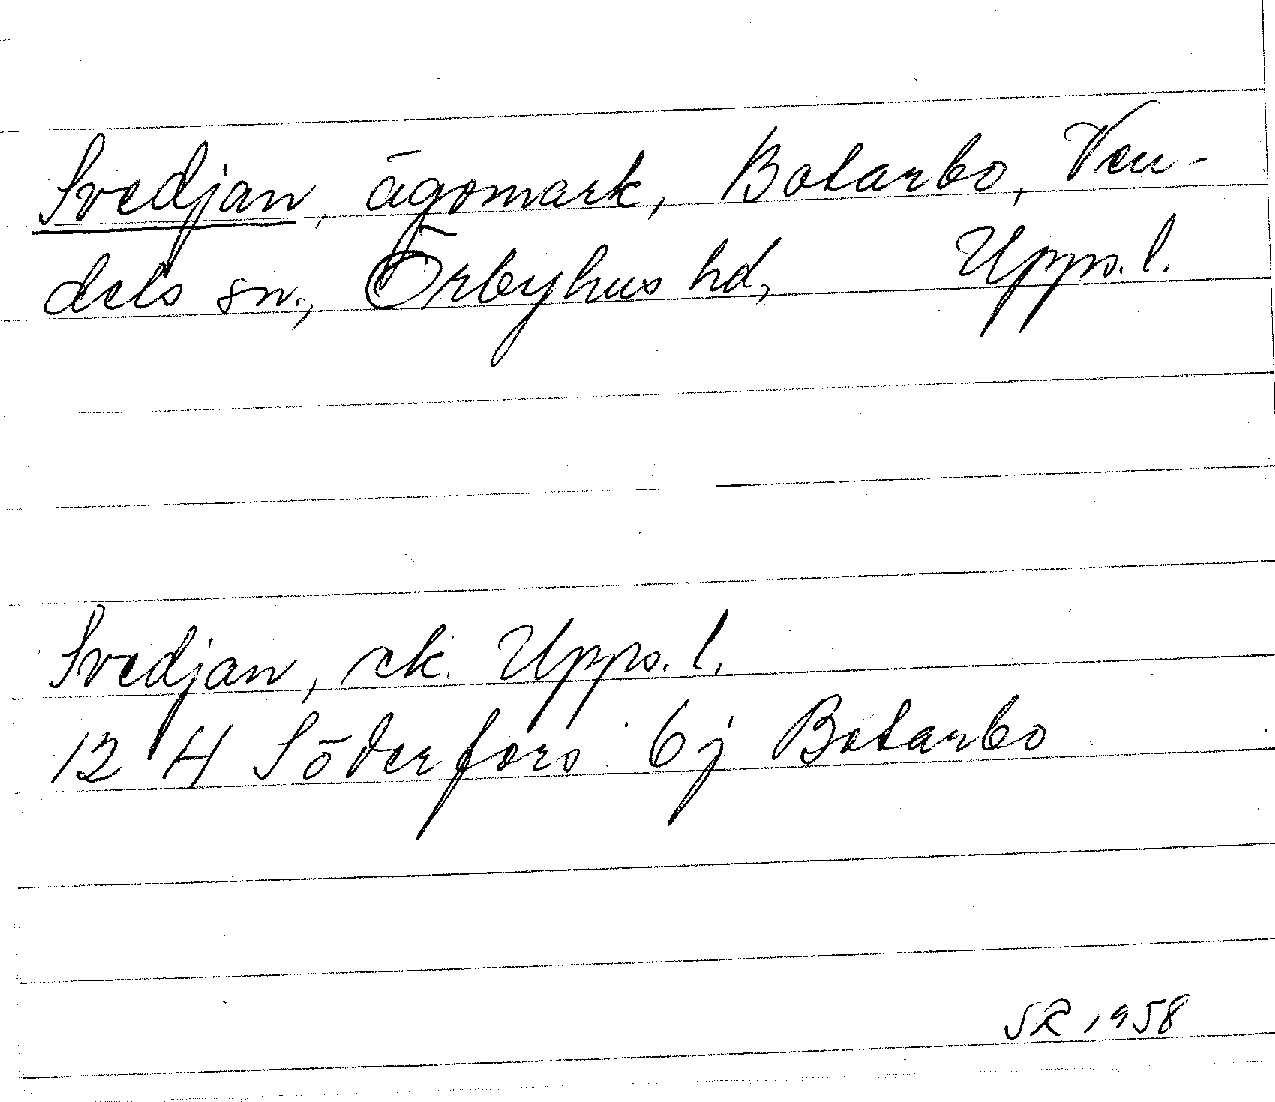 Svedjan, ägomark, Botarbo, Ven-
dels sn., Örbyhus hd, Upps. l.
Svedjan, ek. Upps. l.
12 H Söderfors 6j Botarbo
SR 1958